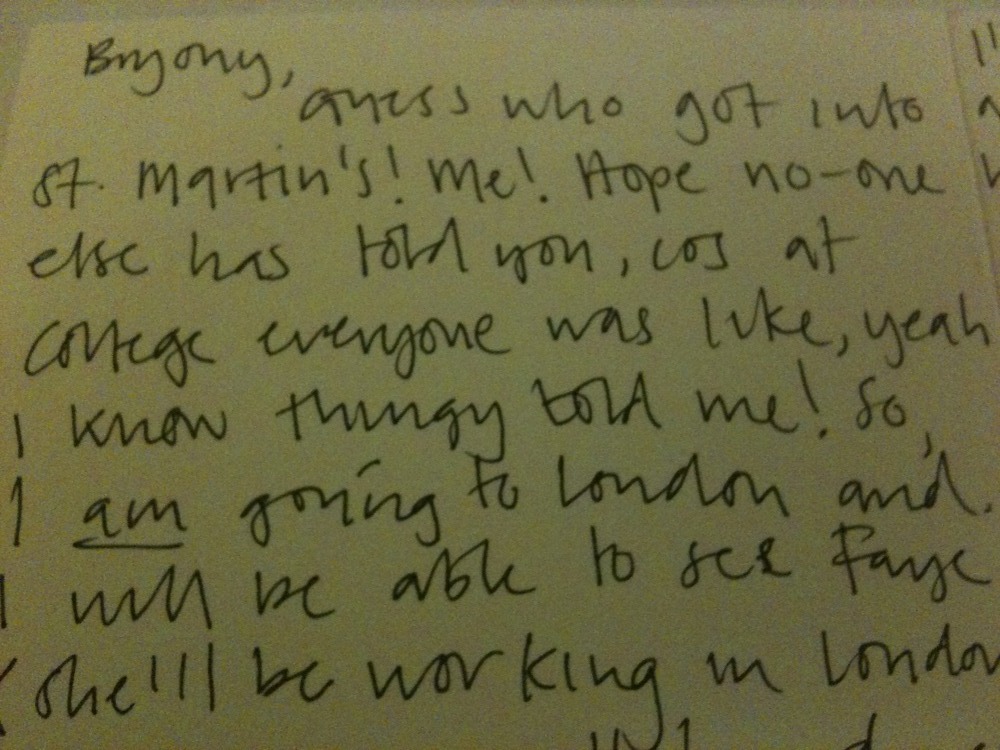 Bryony,
guess who got into
St. Martin's! Me! Hope no-one
else has told you, cos at
College everyone was like, yeah
I know thingy told me! So,
I am going to London and
I will be able to see Faye
(she'll be working in London